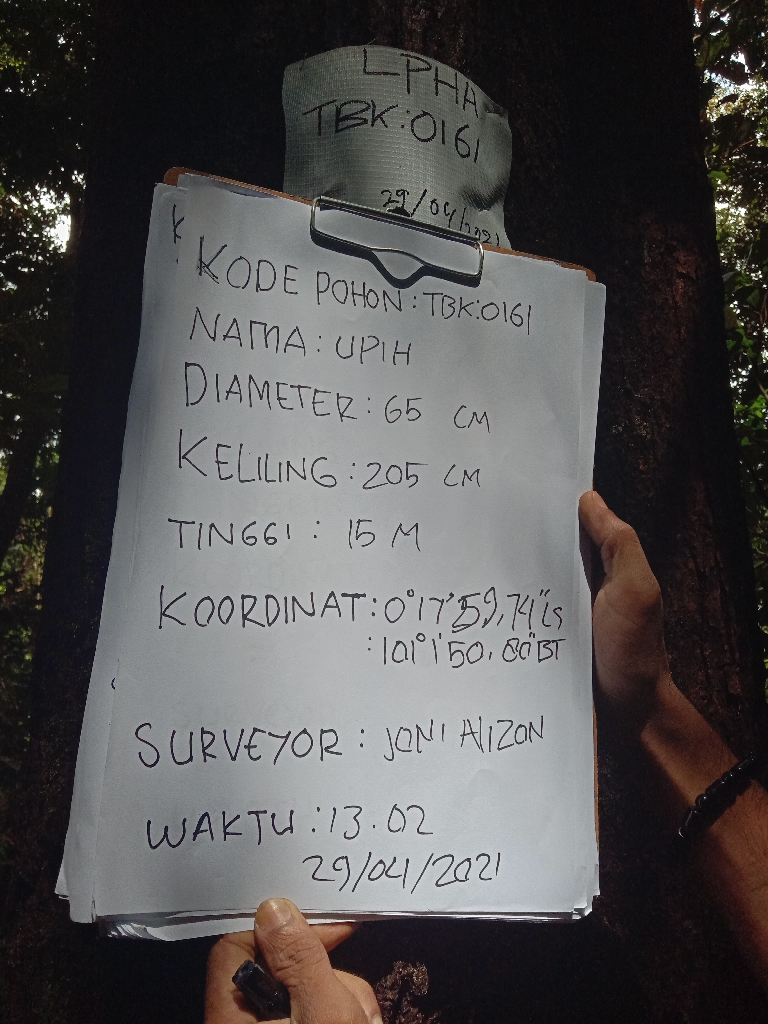 LPHA
TBK:0161
29/04/2021
KODE POHON : TBK:0161
NAMA : UPIH
DIAMETER : 65 CM
KELILING : 205 CM
TINGGI : 15 M
KOORDINAT : 0°17'59,74"LS
: 101°1'50,60"BT
SURVEYOR : JONI ALIZON
WAKTU : 13.02
29/04/2021